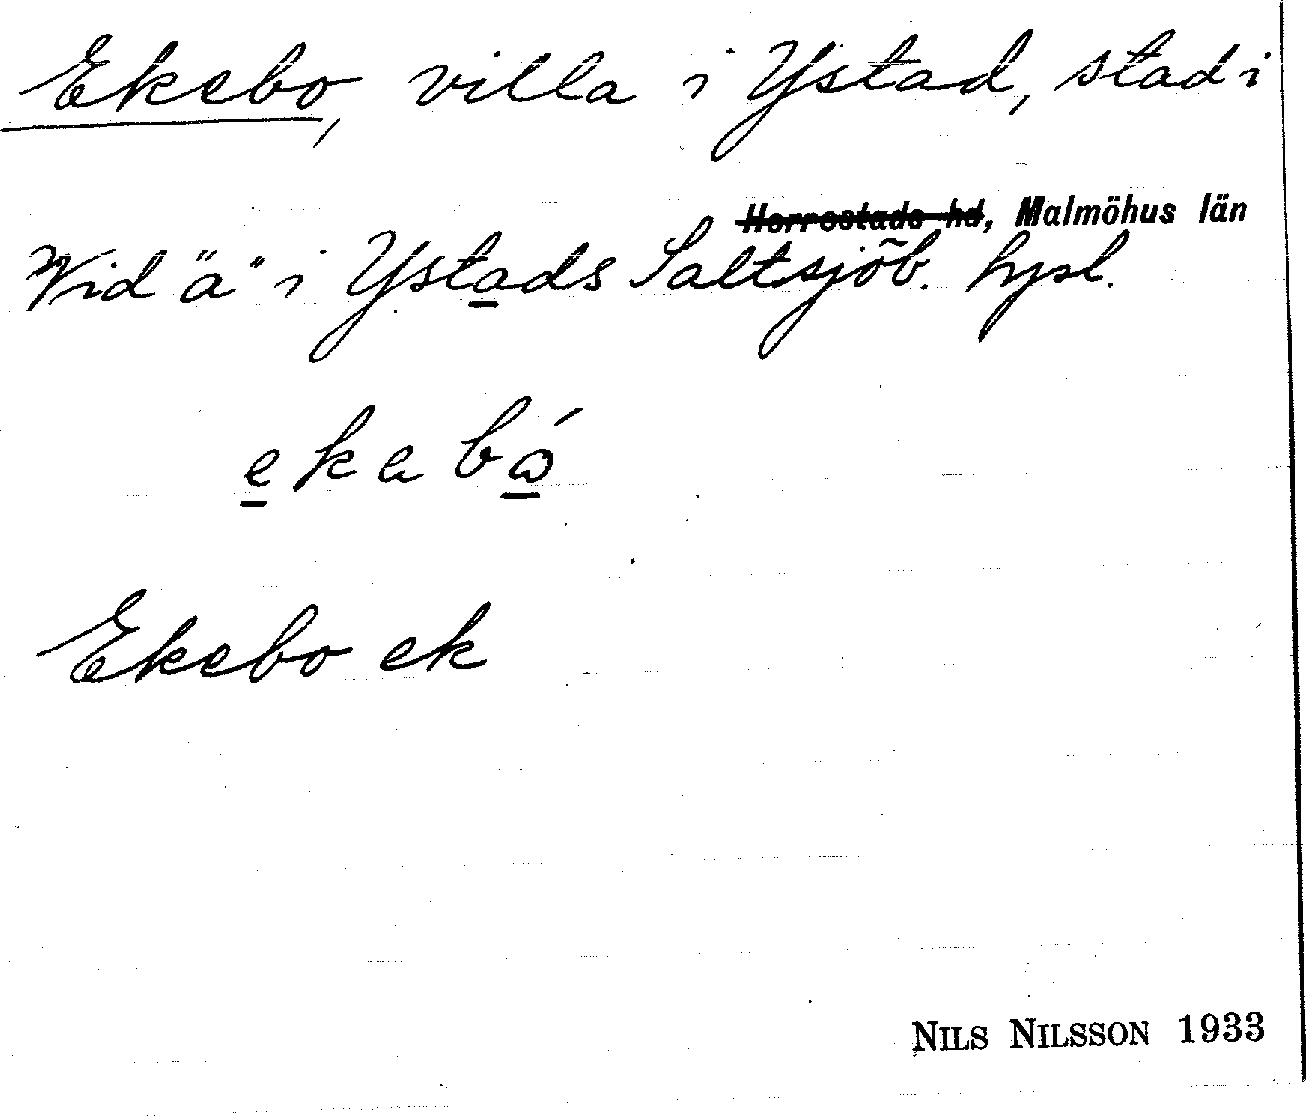 Ekebo, villa i Ystad, stad i
Herrestads hd, Malmöhus län
Vid "a" i Ystads Saltsjöb. hpl.
ekabó
Ekebo ek
NILS NILSSON 1933